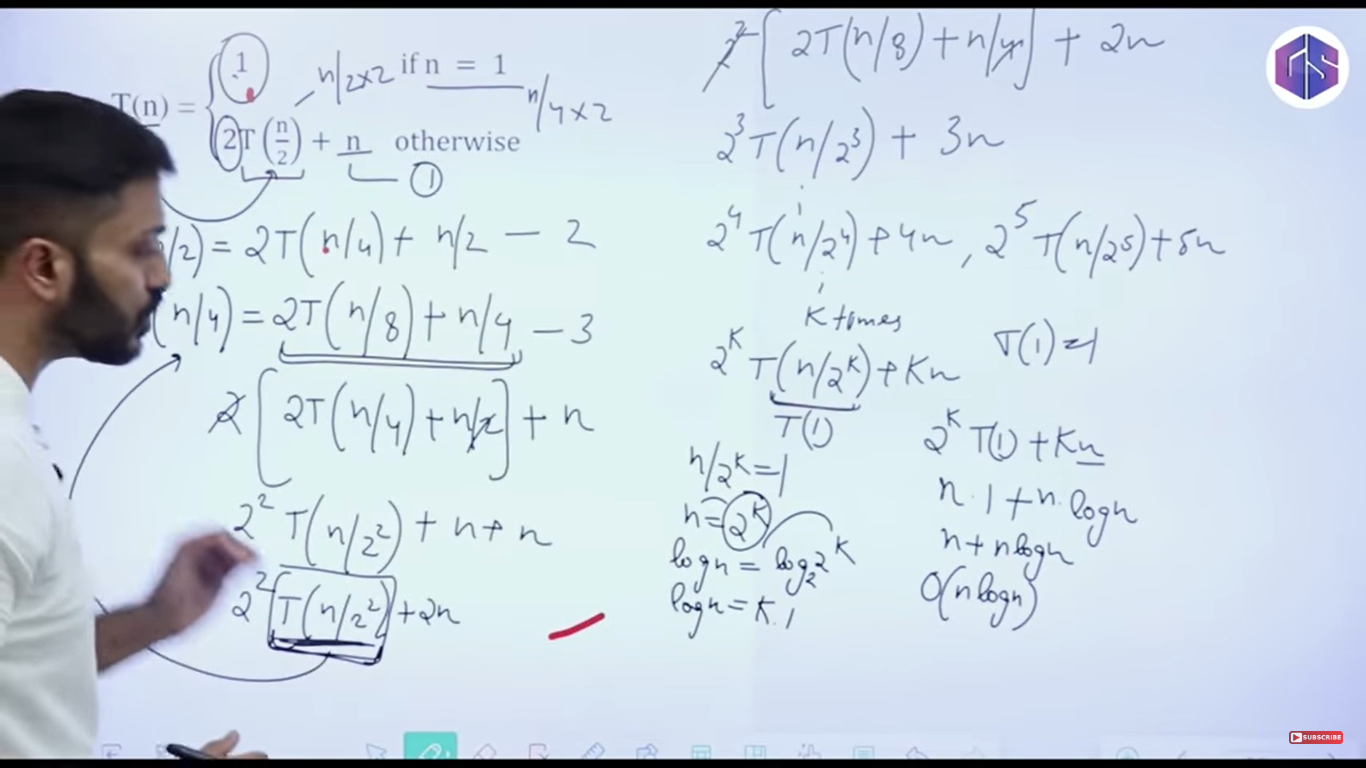 T(n) = { 1 if n = 1
2T(n/2) + n otherwise
n/2×2
n/4×2
①
/2) = 2T(n/4) + n/2 — 2
(n/4) = 2T(n/8) + n/4 — 3
2[2T(n/4) + n/2] + n
2² T(n/2²) + n + n
2² T(n/2²) + 2n
2²[2T(n/8) + n/4] + 2n
2³T(n/2³) + 3n
2⁴ T(n/2⁴) + 4n , 2⁵ T(n/2⁵) + 5n
K times
2ᴷ T(n/2ᴷ) + Kn
T(1)
T(1) = 1
n/2ᴷ = 1
n = 2ᴷ
logn = log₂2ᴷ
logn = K.1
2ᴷ T(1) + Kn
n.1 + n.logn
n + nlogn
O(nlogn)
SUBSCRIBE